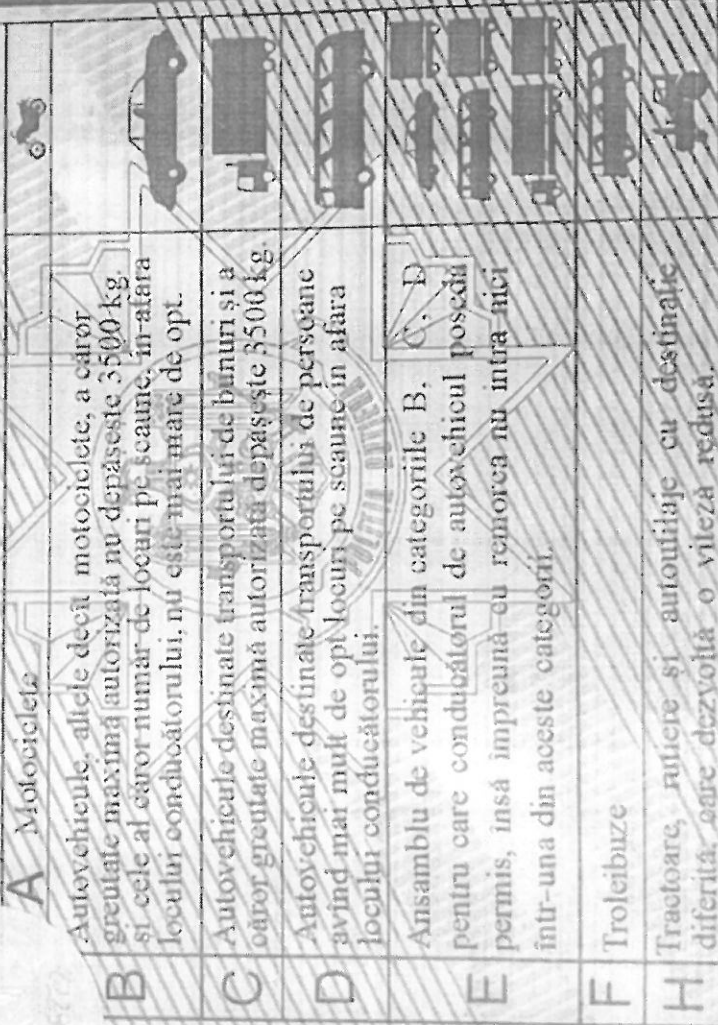 A Motociclete
B Autovehicule, altele decît motociclete, a căror
greutate maximă autorizată nu depăşeşte 3500 kg.
şi cele al căror număr de locuri pe scaune, în afara
locului conducătorului, nu este mai mare de opt.
C Autovehicule destinate transportului de bunuri şi a
căror greutate maximă autorizată depăşeşte 3500 kg.
D Autovehicule destinate transportului de persoane
avînd mai mult de opt locuri pe scaune în afara
locului conducătorului.
E Ansamblu de vehicule din categoriile B, C, D
pentru care conducătorul de autovehicul posedă
permis, însă împreună cu remorca nu intră nici
într-una din aceste categorii.
F Troleibuze
H Tractoare, rutiere şi autoutilaje cu destinaţie
diferită, care dezvoltă o viteză redusă.
POLIŢIA